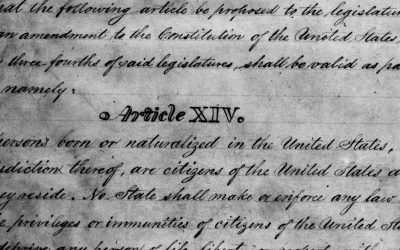 hat the following article be proposed to the legislatur
an amendment to the Constitution of the United States,
three-fourths of said legislatures, shall be valid as pa
namely:
Article XIV.
persons born or naturalized in the United States,
isdiction thereof, are citizens of the United States a
ey reside. No State shall make or enforce any law
e privileges or immunities of citizens of the United Sta
deprive any person of life, libert